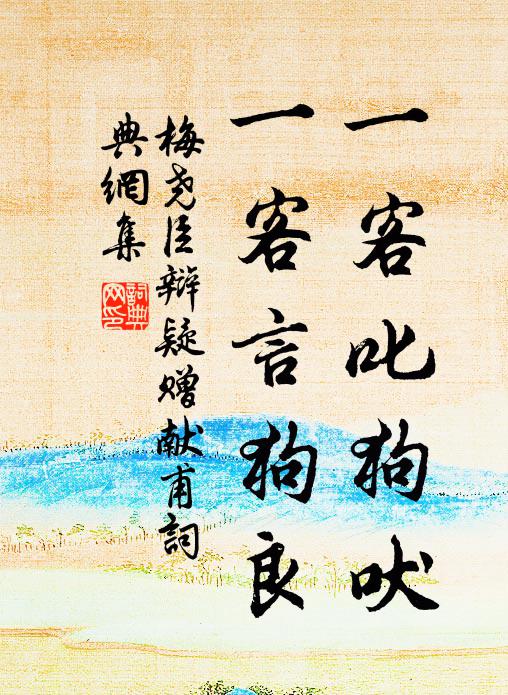 一客叱狗吠
一客言狗良
梅尧臣辩疑赠献甫詞
典網集
詞典网印